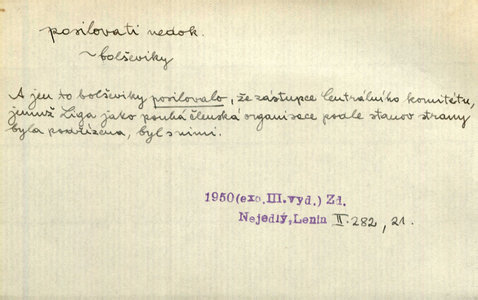 posilovati nedok.
~ bolševiky
A jen to bolševiky posilovalo, že zástupce Centrálního komitétu,
jemuž Liga jako pouhá členská organisace podle stanov strany
byla podřízena, byl s nimi.
1950 (exc. III. vyd.) Zd.
Nejedlý, Lenin II. 282, 21.